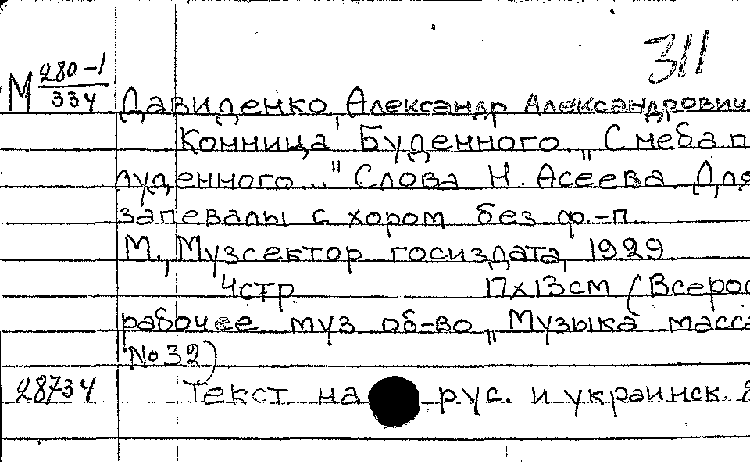 311
М 280-1
334
Давиденко, Александр Александрович
Конница Буденного „С неба п
луденного..." Слова Н. Асеева Для
запевалы с хором без ф.-п.
М., Музсектор госиздата, 1929
4стр 17х13см (Всерос
рабочее муз об-во „Музыка масса
№32)
28734 Текст на рус. и украинск.